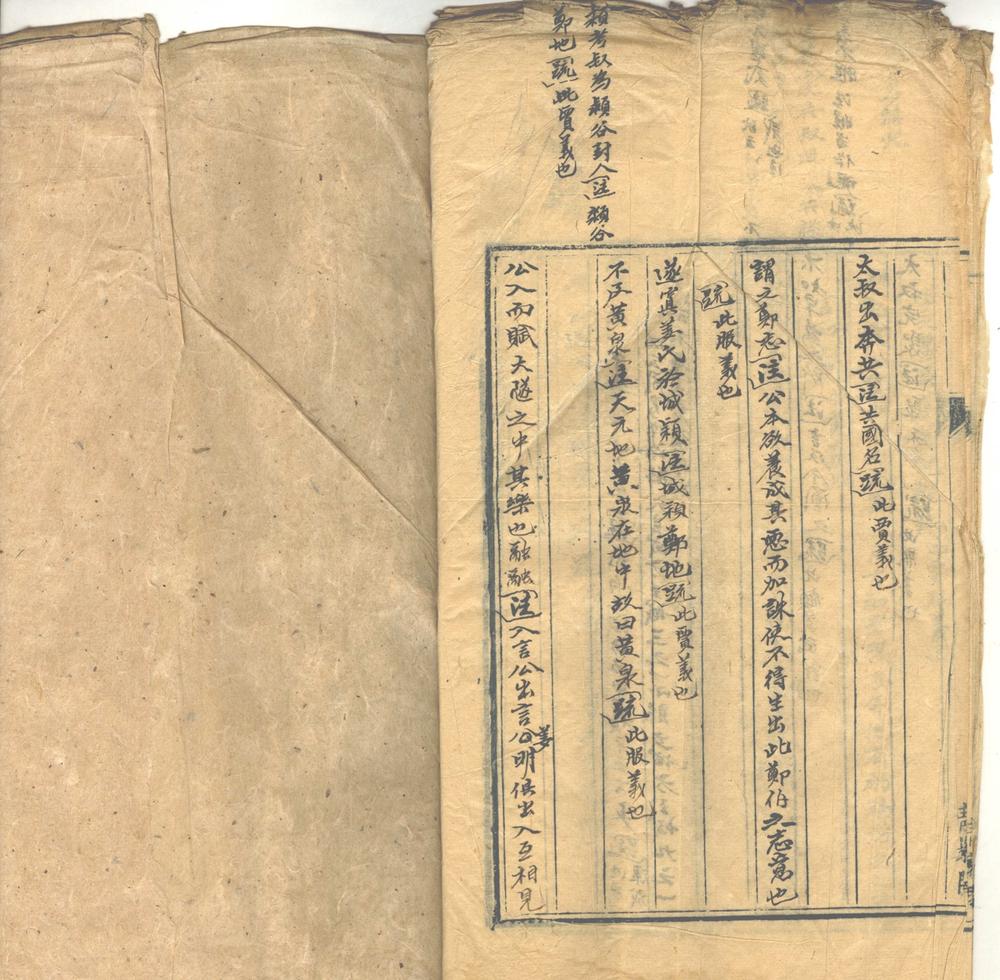 太叔出奔共注共國名疏此賈義也
謂之鄭志注公本欲養成其惡而加誅使不得生出此鄭伯之志意也
疏此服義也
遂寘姜氏於城潁注城潁鄭地疏此賈義也
不及黃泉注天元地黃泉在地中故曰黃泉疏此服義也
潁考叔為潁谷封人注潁谷
鄭地疏此賈義也
公入而賦大隧之中其樂也融融注入言公出言姜明俱出入互相見